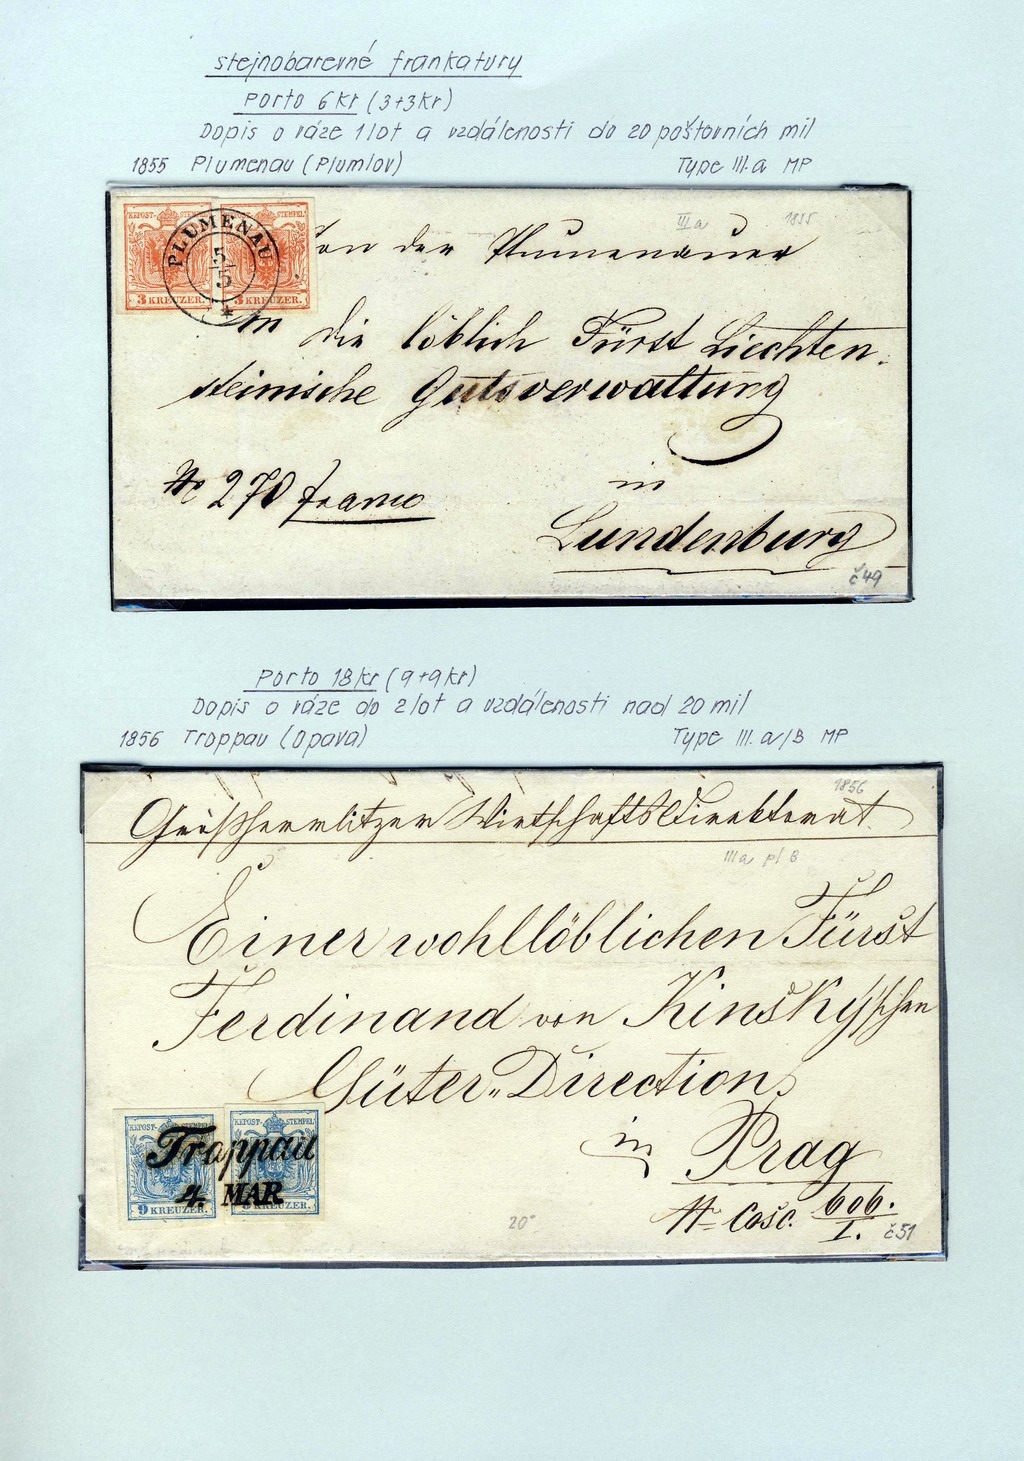 stejnobarevné frankatury
Porto 6 kr (3+3kr)
Dopis o váze 1 lot a vzdálenosti do 20 poštovních mil
1855 Plumenau (Plumlov) Type III.a MP
KK POST-STEMPEL KK POST-STEMPEL
PLUMENAU
5/5
3 KREUZER. 3 KREUZER.
III a 1855
Von der Plumenauer
An die löblich Fürst Liechten-
steinische Gutsverwaltung
No 270 franco
in
Lundenburg
č 49
Porto 18 kr (9+9kr)
Dopis o váze do 2 lot a vzdálenosti nad 20 mil
1856 Troppau (Opava) Type III.a/B MP
1856
Großherrlitzer Wirtschaftsdirektorat
IIIa pl B
Einer wohllöblichen Fürst
Ferdinand von Kinsky'schen
Güter-Direction
in
Prag
KK POST-STEMPEL KK POST-STEMPEL
Troppau
4. MAR
9 KREUZER. 9 KREUZER.
20°
606.
I.
č 51